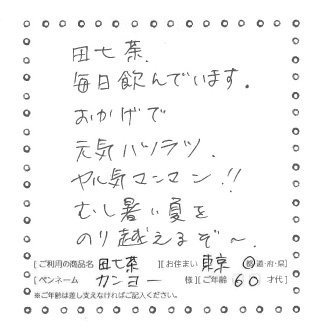 田七茶.
毎日飲んでいます.
おかげで
元気ハツラツ.
ヤル気マンマン!!
むし暑い夏を
のり越えるぞ〜.
[ご利用の商品名 田七茶 ][お住まい 東京 都・道・府・県]
[ペンネーム カンヨー 様][ご年齢 60 才代]
※ご年齢は差し支えなければご記入ください。